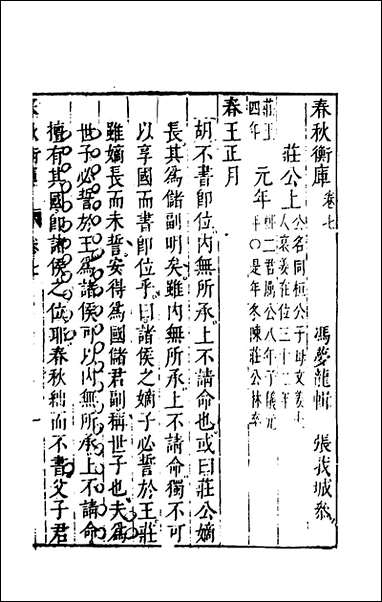 春秋衡庫 卷七
馮夢龍輯 張我城參
莊公上 公名同桓公子母文姜夫
人哀姜在位三十二年
莊王 元年
四年
年〇是年冬陳莊公林卒
春王正月
胡不書即位內無所承上不請命也或曰莊公嫡
長其為儲副明矣雖內無所承上不請命獨不可
以享國而書即位乎曰諸侯之嫡子必誓於王莊
雖嫡長而未誓安得為國儲君副稱世子也夫為
世子必誓於王為諸侯可以內無所承上不請命
擅有其國即諸侯之位耶春秋絀而不書父子君